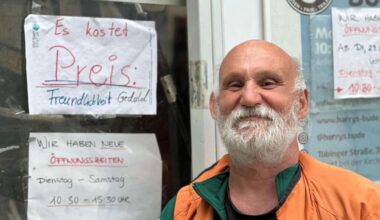 Es kostet
Preis:
Freundlichkeit Geduld
WIR HABEN NEUE
ÖFFNUNGSZEITEN
DIENSTAG - SAMSTAG
10:30 - 15:30 UHR
WIR HA
ÖFFNUNG
AB DI,
DIENSTAG
10:30
@harrys.bude
Tübinger Straße